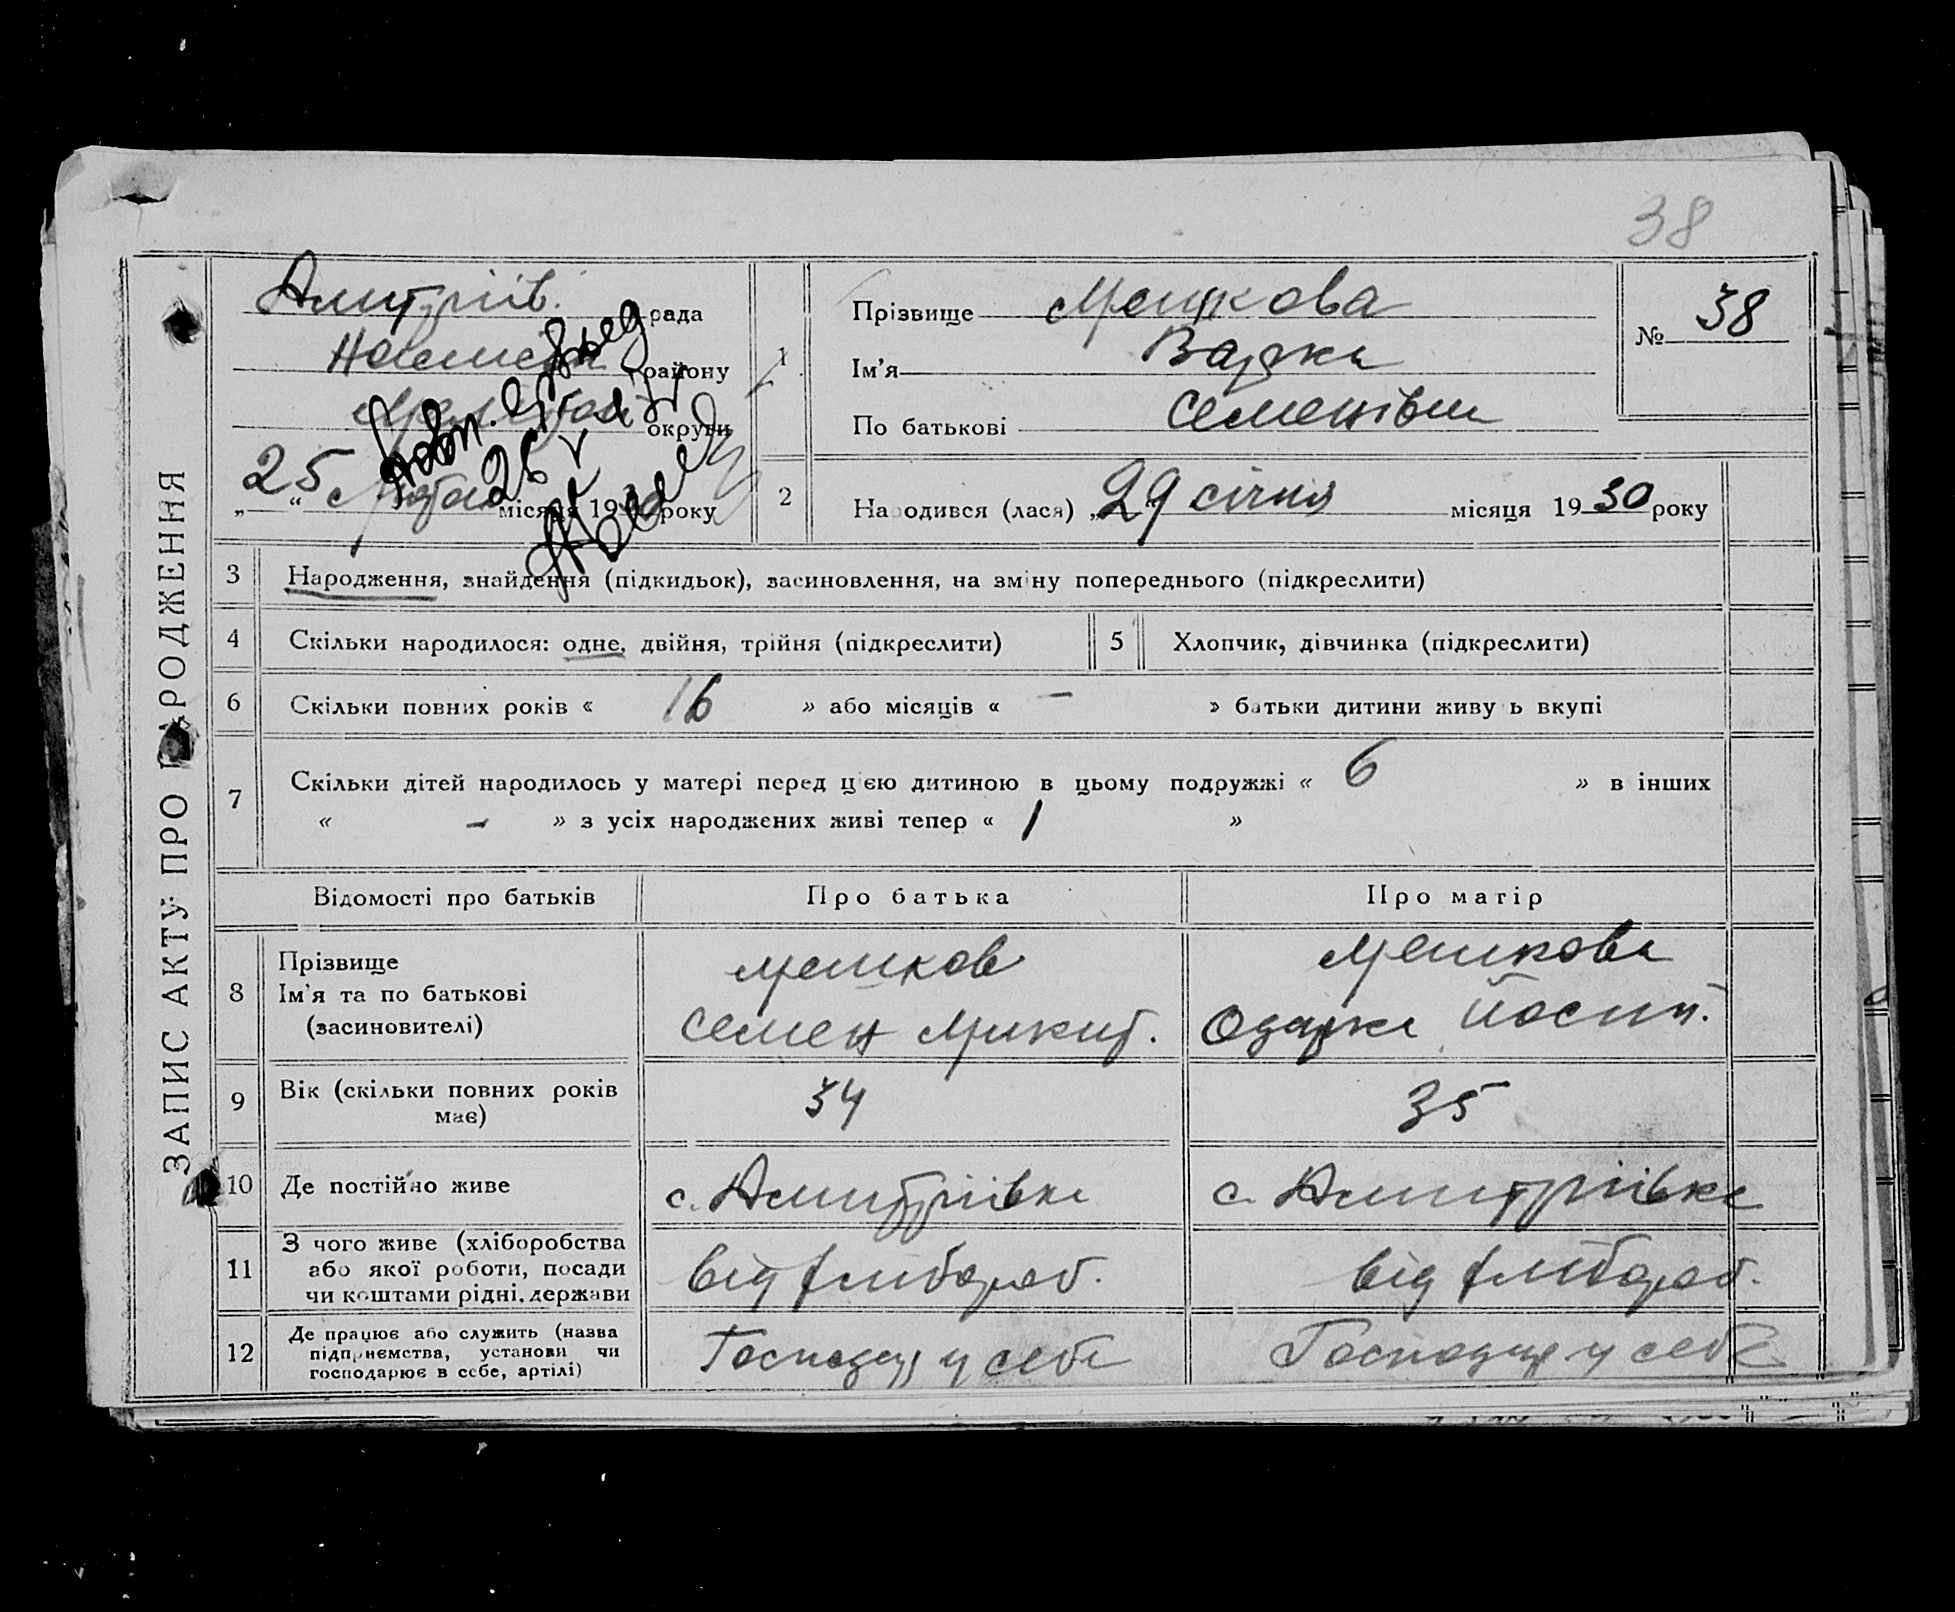 38
ЗАПИС АКТУ ПРО НАРОДЖЕННЯ
Дмитріїв. рада
району
округи
„25“ місяця 1930 року
1
Прізвище Мешкова
Ім'я Варка
По батькові Семенівна
№ 38
2 Народився (лася) „29 січня місяця 1930 року
3 Народження, знайдення (підкидьок), засиновлення, на зміну попереднього (підкреслити)
4 Скільки народилося: одне, двійня, трійня (підкреслити) 5 Хлопчик, дівчинка (підкреслити)
6 Скільки повних років « 16 » або місяців « – » батьки дитини живуть вкупі
7 Скільки дітей народилось у матері перед цією дитиною в цьому подружжі « 6 » в інших
« – » з усіх народжених живі тепер « 1 »
Відомості про батьків Про батька Про матір
8 Прізвище Мешков Мешкова
Ім'я та по батькові Семен Микит. Одарка Йосип.
(засиновителі)
9 Вік (скільки повних років має) 34 35
10 Де постійно живе с. Дмитріївка с. Дмитріївка
11 З чого живе (хліборобства
або якої роботи, посади від хлібороб. від хлібороб.
чи коштами рідні, держави
12 Де працює або служить (назва
підприємства, установи чи Господар у себе Господар у себе
господарює в себе, артілі)